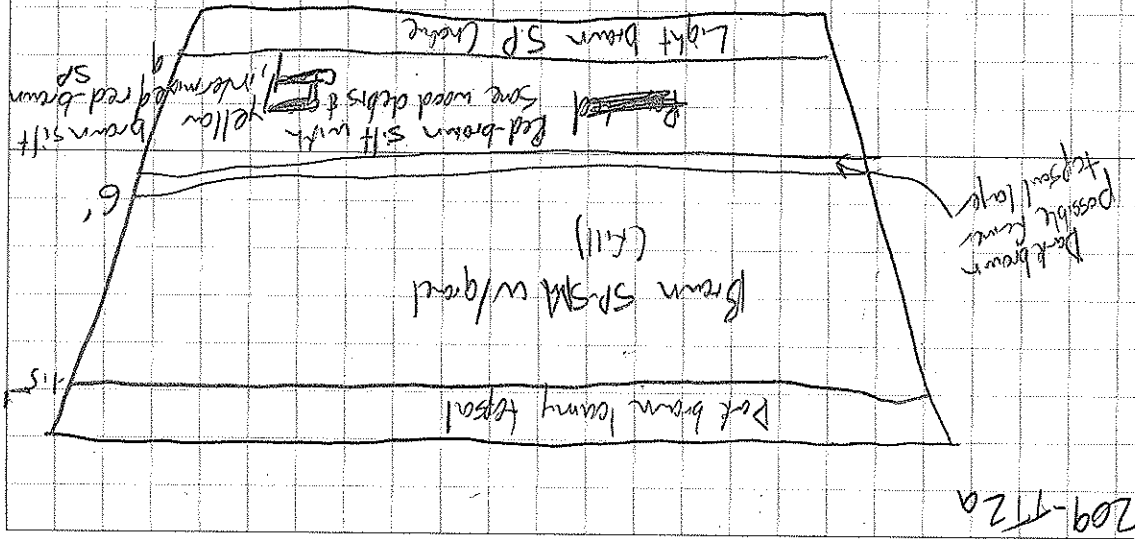 209-TT2a
Dark brown loamy topsoil
1.5'
Brown SP-SM w/gravel
(Fill)
Dark brown
possible former
topsoil layer
6'
Red-brown silt with yellow brown silt
some wood debris & intermixed red-brown
SP
9
Light brown SP (native